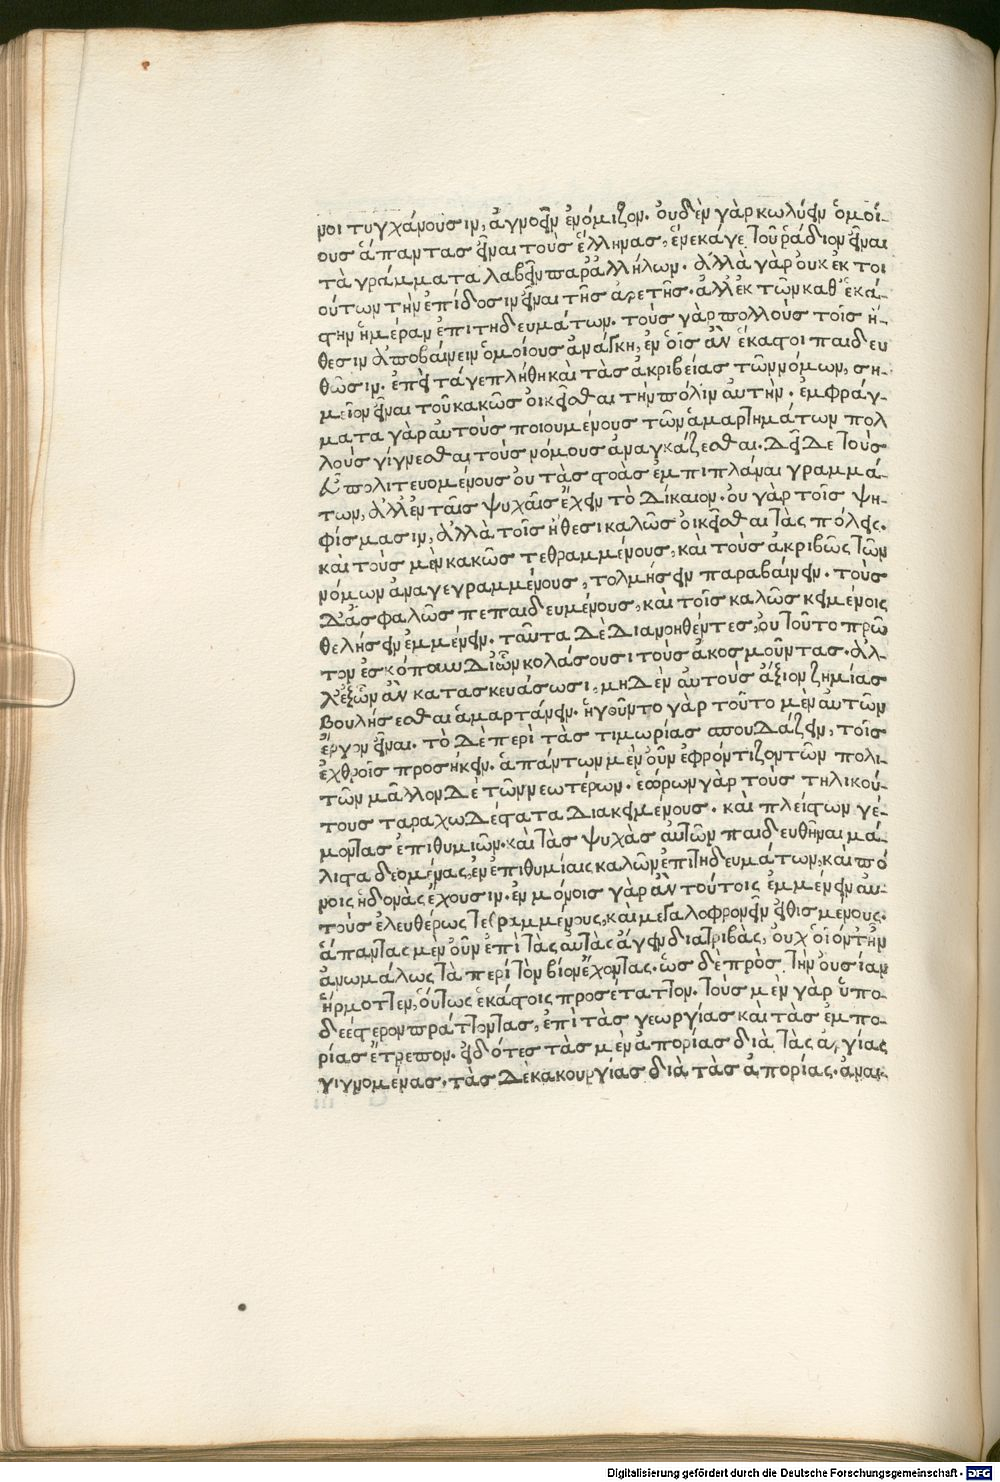 νοι τυγχάνουσιν, ἀγνοεῖν ἐνόμιζον. οὐδὲν γὰρ κωλύειν ὁμοί-
ους ἅπαντας εἶναι τοὺς ἕλληνας, ἕνεκά γε τοῦ ῥάδιον εἶναι
τὰ γράμματα λαβεῖν παρ' ἀλλήλων. ἀλλὰ γὰρ οὐκ ἐκ τοι
ούτων τὴν ἐπίδοσιν εἶναι τῆς ἀρετῆς. ἀλλ' ἐκ τῶν καθ' ἑκά-
στην ἡμέραν ἐπιτηδευμάτων. τοὺς γὰρ πολλοὺς τοῖς ἤ-
θεσιν ἀποβαίνειν ὁμοίους ἀνάγκη, ἐν οἷς ἂν ἕκαστοι παιδευ
θῶσιν. ἐπεὶ τά γε πλήθη καὶ τὰς ἀκριβείας τῶν νόμων, ση-
μεῖον εἶναι τοῦ κακῶς οἰκεῖσθαι τὴν πόλιν αὐτήν. ἐμφράγ-
ματα γὰρ αὐτοὺς ποιουμένους τῶν ἁμαρτημάτων πολ
λοὺς γίγνεσθαι τοὺς νόμους ἀναγκάζεσθαι. δεῖ δὲ τοὺς
εὖ πολιτευομένους οὐ τὰς στοὰς ἐμπιπλάναι γραμμά-
των, ἀλλ' ἐν ταῖς ψυχαῖς ἔχειν τὸ δίκαιον. οὐ γὰρ τοῖς ψη-
φίσμασιν, ἀλλὰ τοῖς ἤθεσι καλῶς οἰκεῖσθαι τὰς πόλεις.
καὶ τοὺς μὲν κακῶς τεθραμμένους, καὶ τοὺς ἀκριβῶς τῶν
νόμων ἀναγεγραμμένους, τολμήσειν παραβαίνειν. τοὺς
δ' ἀσφαλῶς πεπαιδευμένους, καὶ τοῖς καλῶς κειμένοις
θελήσειν ἐμμένειν. ταῦτα δὲ διανοηθέντες, οὐ τοῦτο πρῶ
τον ἐσκόπουν δι' ὧν κολάσουσι τοὺς ἀκοσμοῦντας. ἀλ-
λ' ἐξ ὧν ἂν κατασκευάσωσι, μηδὲν αὐτοὺς ἄξιον ζημίας
βουλήσεσθαι ἁμαρτάνειν. ἡγοῦντο γὰρ τοῦτο μὲν αὐτῶν
ἔργον εἶναι. τὸ δὲ περὶ τὰς τιμωρίας σπουδάζειν, τοῖς
ἐχθροῖς προσήκειν. ἁπάντων μὲν οὖν ἐφρόντιζον τῶν πολι-
τῶν μᾶλλον δὲ τῶν νεωτέρων. ἑώρων γὰρ τοὺς τηλικού-
τους ταραχωδέστατα διακειμένους. καὶ πλείστων γέ-
μοντας ἐπιθυμιῶν. καὶ τὰς ψυχὰς αὐτῶν παιδευθῆναι μά-
λιστα δεομένας, ἐν ἐπιθυμίαις καλῶν ἐπιτηδευμάτων, καὶ πό
νοις ἡδονὰς ἔχουσιν. ἐν μόνοις γὰρ ἂν τούτοις ἐμμένειν αὐ-
τοὺς ἐλευθέρως τεθραμμένους, καὶ μεγαλοφρονεῖν εἰθισμένους.
ἅπαντας μὲν οὖν ἐπὶ τὰς αὐτὰς ἄγειν διατριβὰς, οὐχ οἷόν τ' ἦν
ἀνωμάλως τὰ περὶ τὸν βίον ἔχοντας. ὡς δὲ πρὸς τὴν οὐσίαν
ἥρμοττεν, οὕτως ἑκάστοις προσέταττον. τοὺς μὲν γὰρ ὑπο-
δεέστερον πράττοντας, ἐπὶ τὰς γεωργίας καὶ τὰς ἐμπο-
ρίας ἔτρεπον. εἰδότες τὰς μὲν ἀπορίας διὰ τὰς ἀργίας
γιγνομένας. τὰς δὲ κακουργίας διὰ τὰς ἀπορίας. ἀναι-
Digitalisierung gefördert durch die Deutsche Forschungsgemeinschaft - DFG